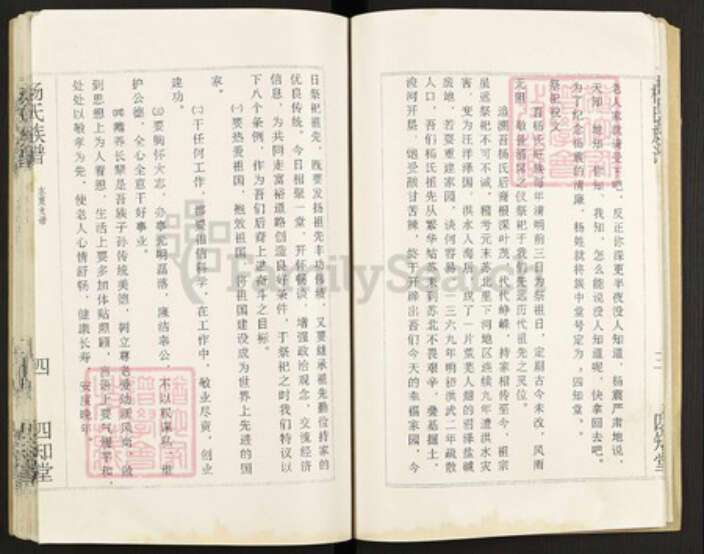 老人家就请受下吧，反正你深更半夜没人知道，杨震严肃地说，
天知、地知、你知、我知，怎么能说没人知道呢，快拿回去吧。
为了纪念杨震的清廉，杨姓就将族中堂号定为"四知堂"。
祭祀祝文
吾杨氏旺族每年清明前三日为祭祖日，定期古今未改，风雨
无阻，敬备酒肴之仪祭祀于我们先远历代祖先之灵位。
追溯吾杨氏后裔根深叶茂，代代峥嵘，持家相传至今，祖宗
虽远祭祀不可不诚，稽考元末苏北里下河地区连续九年遭洪水灾
害，变为汪洋泽国，洪水入海后，成了一片荒芜人烟的沼泽盐碱
废地，若要重建家园，谈何容易，一三六九年明初洪武二年疏散
人口，吾们杨氏祖先从繁华姑苏来到苏北不畏艰辛，叠基掘土，
浚河开垦，饱受酸甘苦辣，终于开辟出吾们今天的幸福家园，今
三
四知堂
日祭祀祖先，既要发扬祖先丰功伟绩，又要继承祖先勤俭持家的
优良传统，今日相聚一堂，开怀畅谈，增强政治观念，交流经济
信息，为共同走富裕道路创造良好条件，于祭祀之时我们特议以
下八个条例，作为吾们后裔上进奋斗之目标。
㈠要热爱祖国，报效祖国，将祖国建设成为世界上先进的国
家。
㈡干任何工作，都要相信科学，在工作中，敬业尽责，创业
建功。
㈢要胸怀大志，办事光明磊落，廉洁奉公，不以权谋私，维
护公德，全心全意干好事业。
㈣赡养长辈是吾族子孙传统美德，树立尊老爱幼新风尚，做
到思想上为人着想，生活上要多加体贴照顾，言语上要气顺平和，
处处以敬孝为先，使老人心情舒畅，健康长寿，安度晚年。
杨氏族谱
四
四知堂
FamilySearch